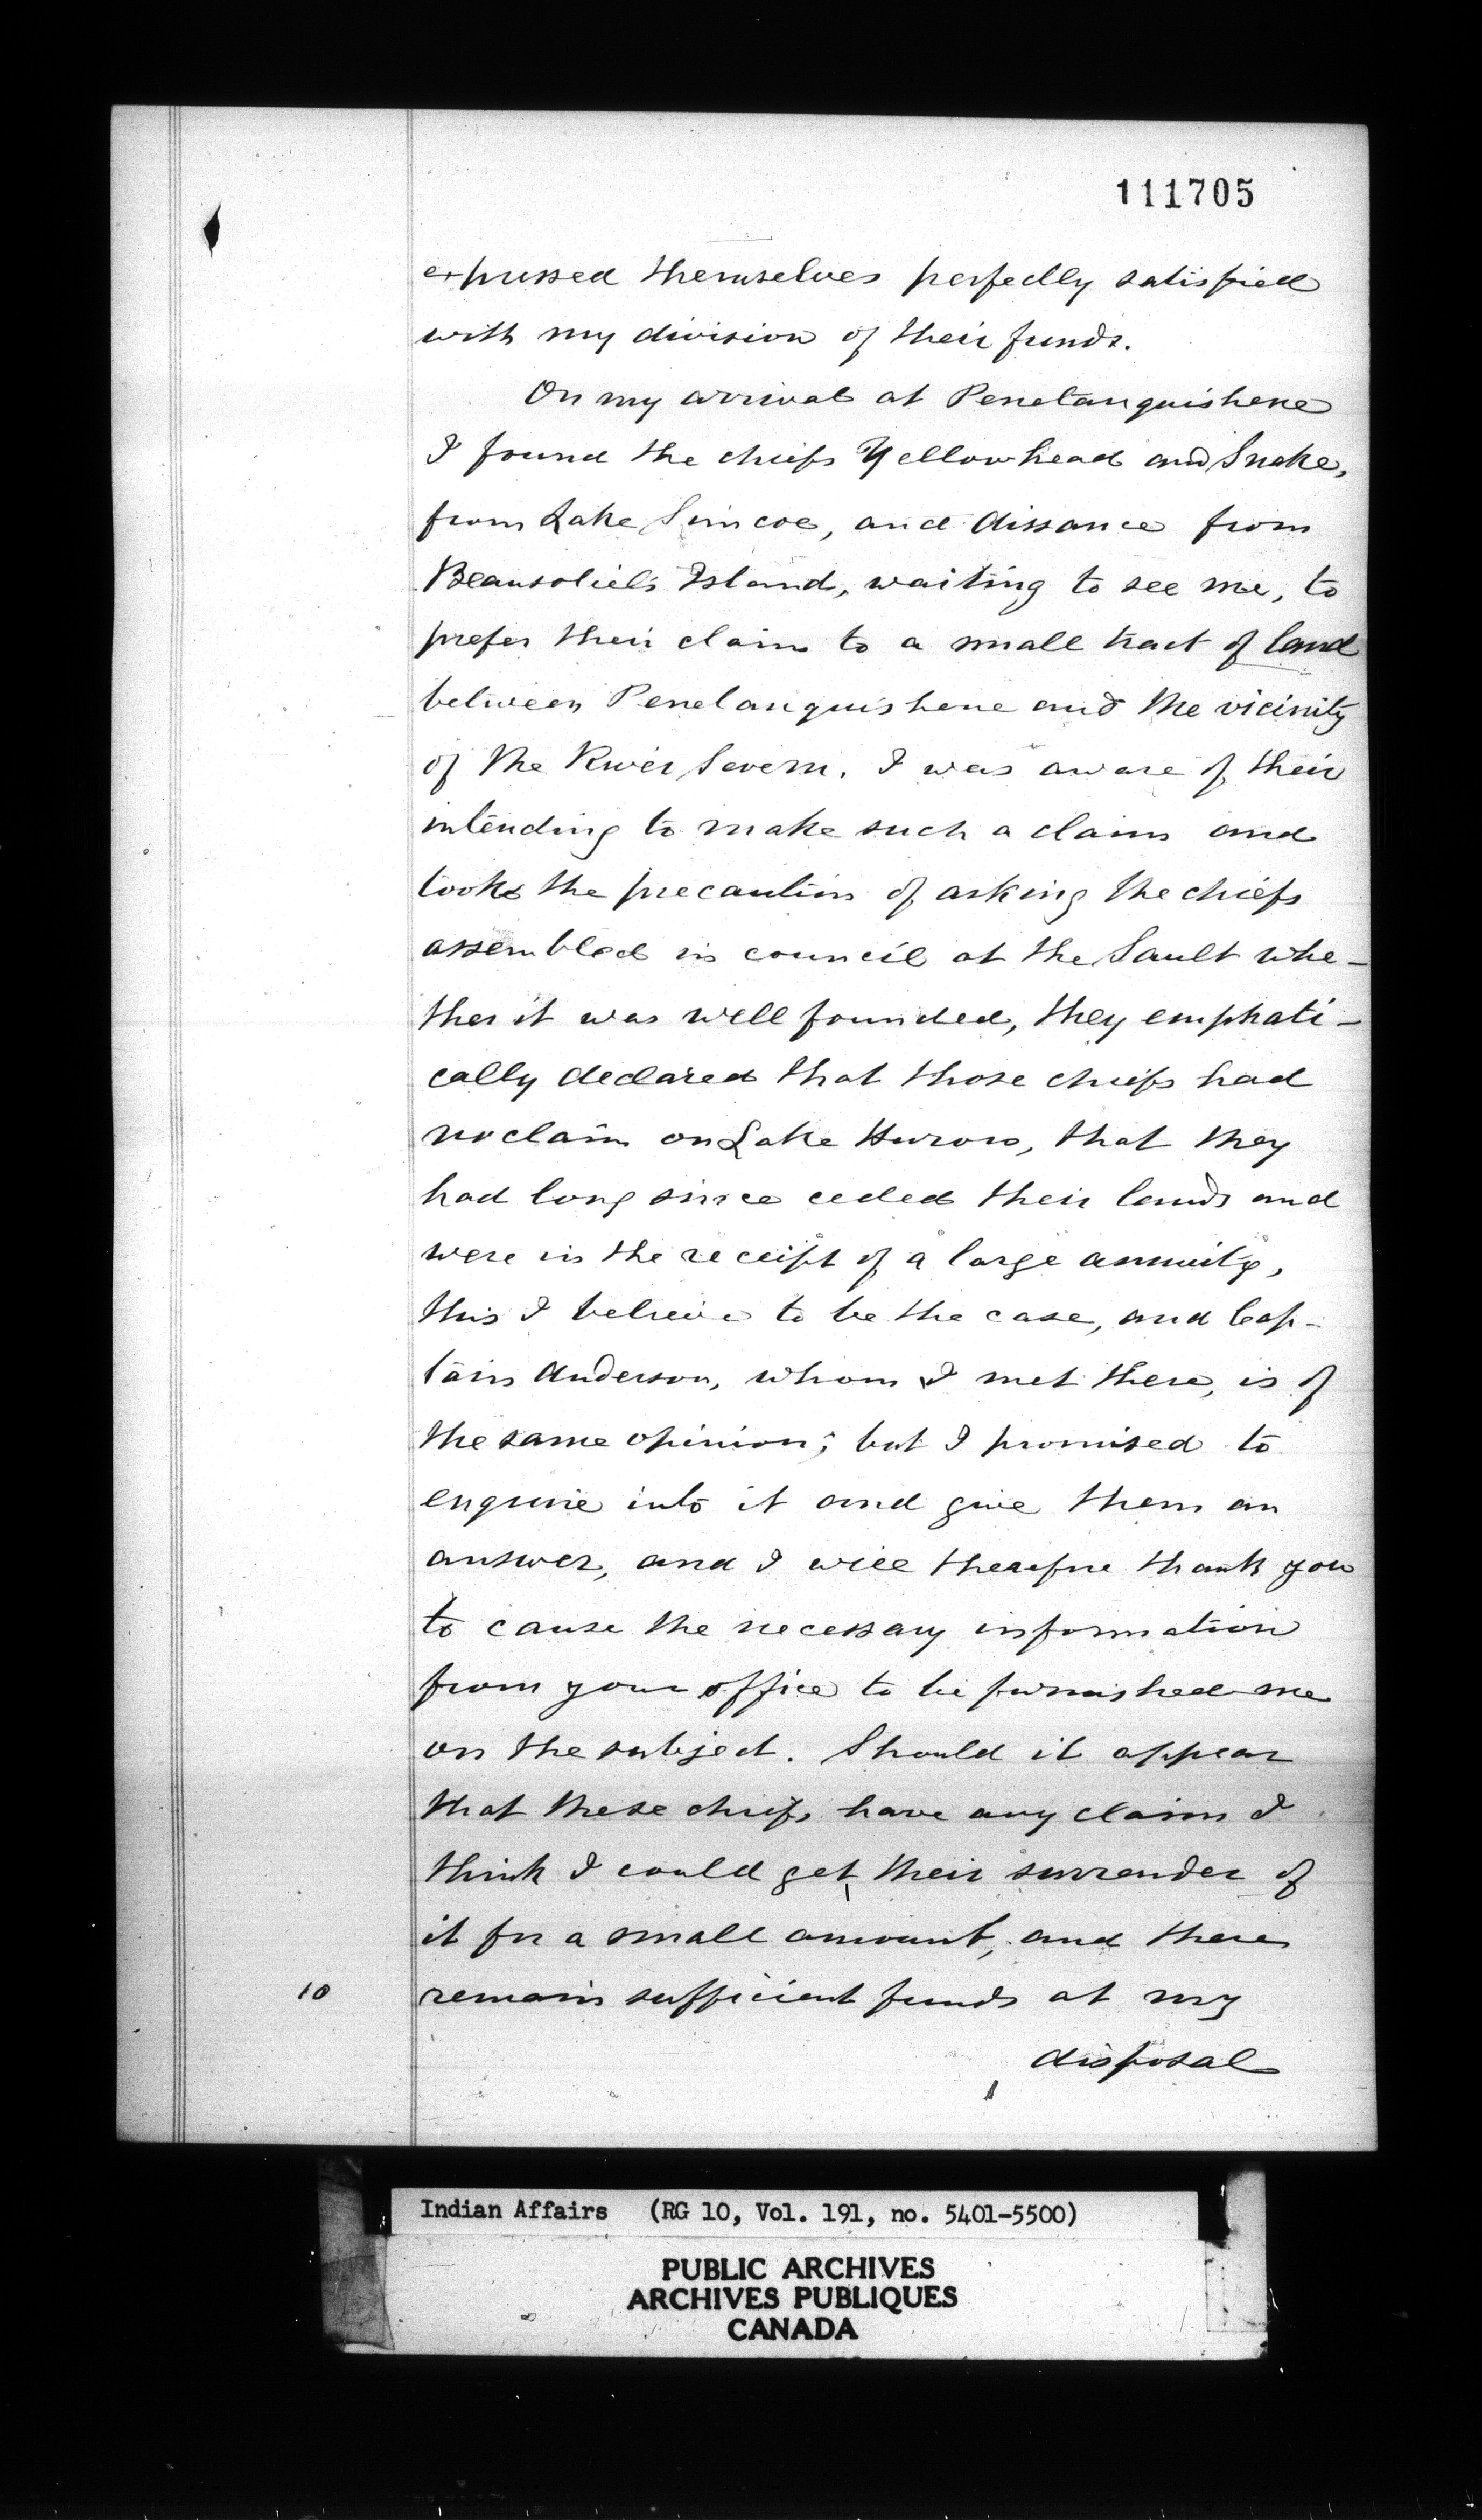 111705
expressed themselves perfectly satisfied
with my division of their funds.
On my arrival at Penetanguishene
I found the chiefs Yellowhead and Snake,
from Lake Simcoe, and Aissance from
Beausoliel's Island, waiting to see me, to
prefer their claim to a small tract of land
between Penetanguishene and the vicinity
of the River Severn. I was aware of their
intending to make such a claim and
took the precaution of asking the chiefs
assembled in council at the Sault whe-
ther it was well founded, they emphati-
cally declared that those chiefs had
no claim on Lake Huron, that they
had long since ceded their lands and
were in the receipt of a large annuity,
this I believe to be the case, and Cap-
tain Anderson, whom I met there, is of
the same opinion; but I promised to
enquire into it and give them an
answer, and I will therefore thank you
to cause the necessary information
from your office to be furnished me
on the subject. Should it appear
that these chiefs have any claim I
think I could get their surrender of
it for a small amount, and there
10 remain sufficient funds at my
disposal
Indian Affairs (RG 10, Vol. 191, no. 5401-5500)
PUBLIC ARCHIVES
ARCHIVES PUBLIQUES
CANADA